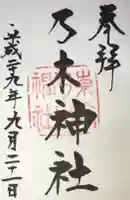 奉拝
乃木神社
平成二九年九月二十一日